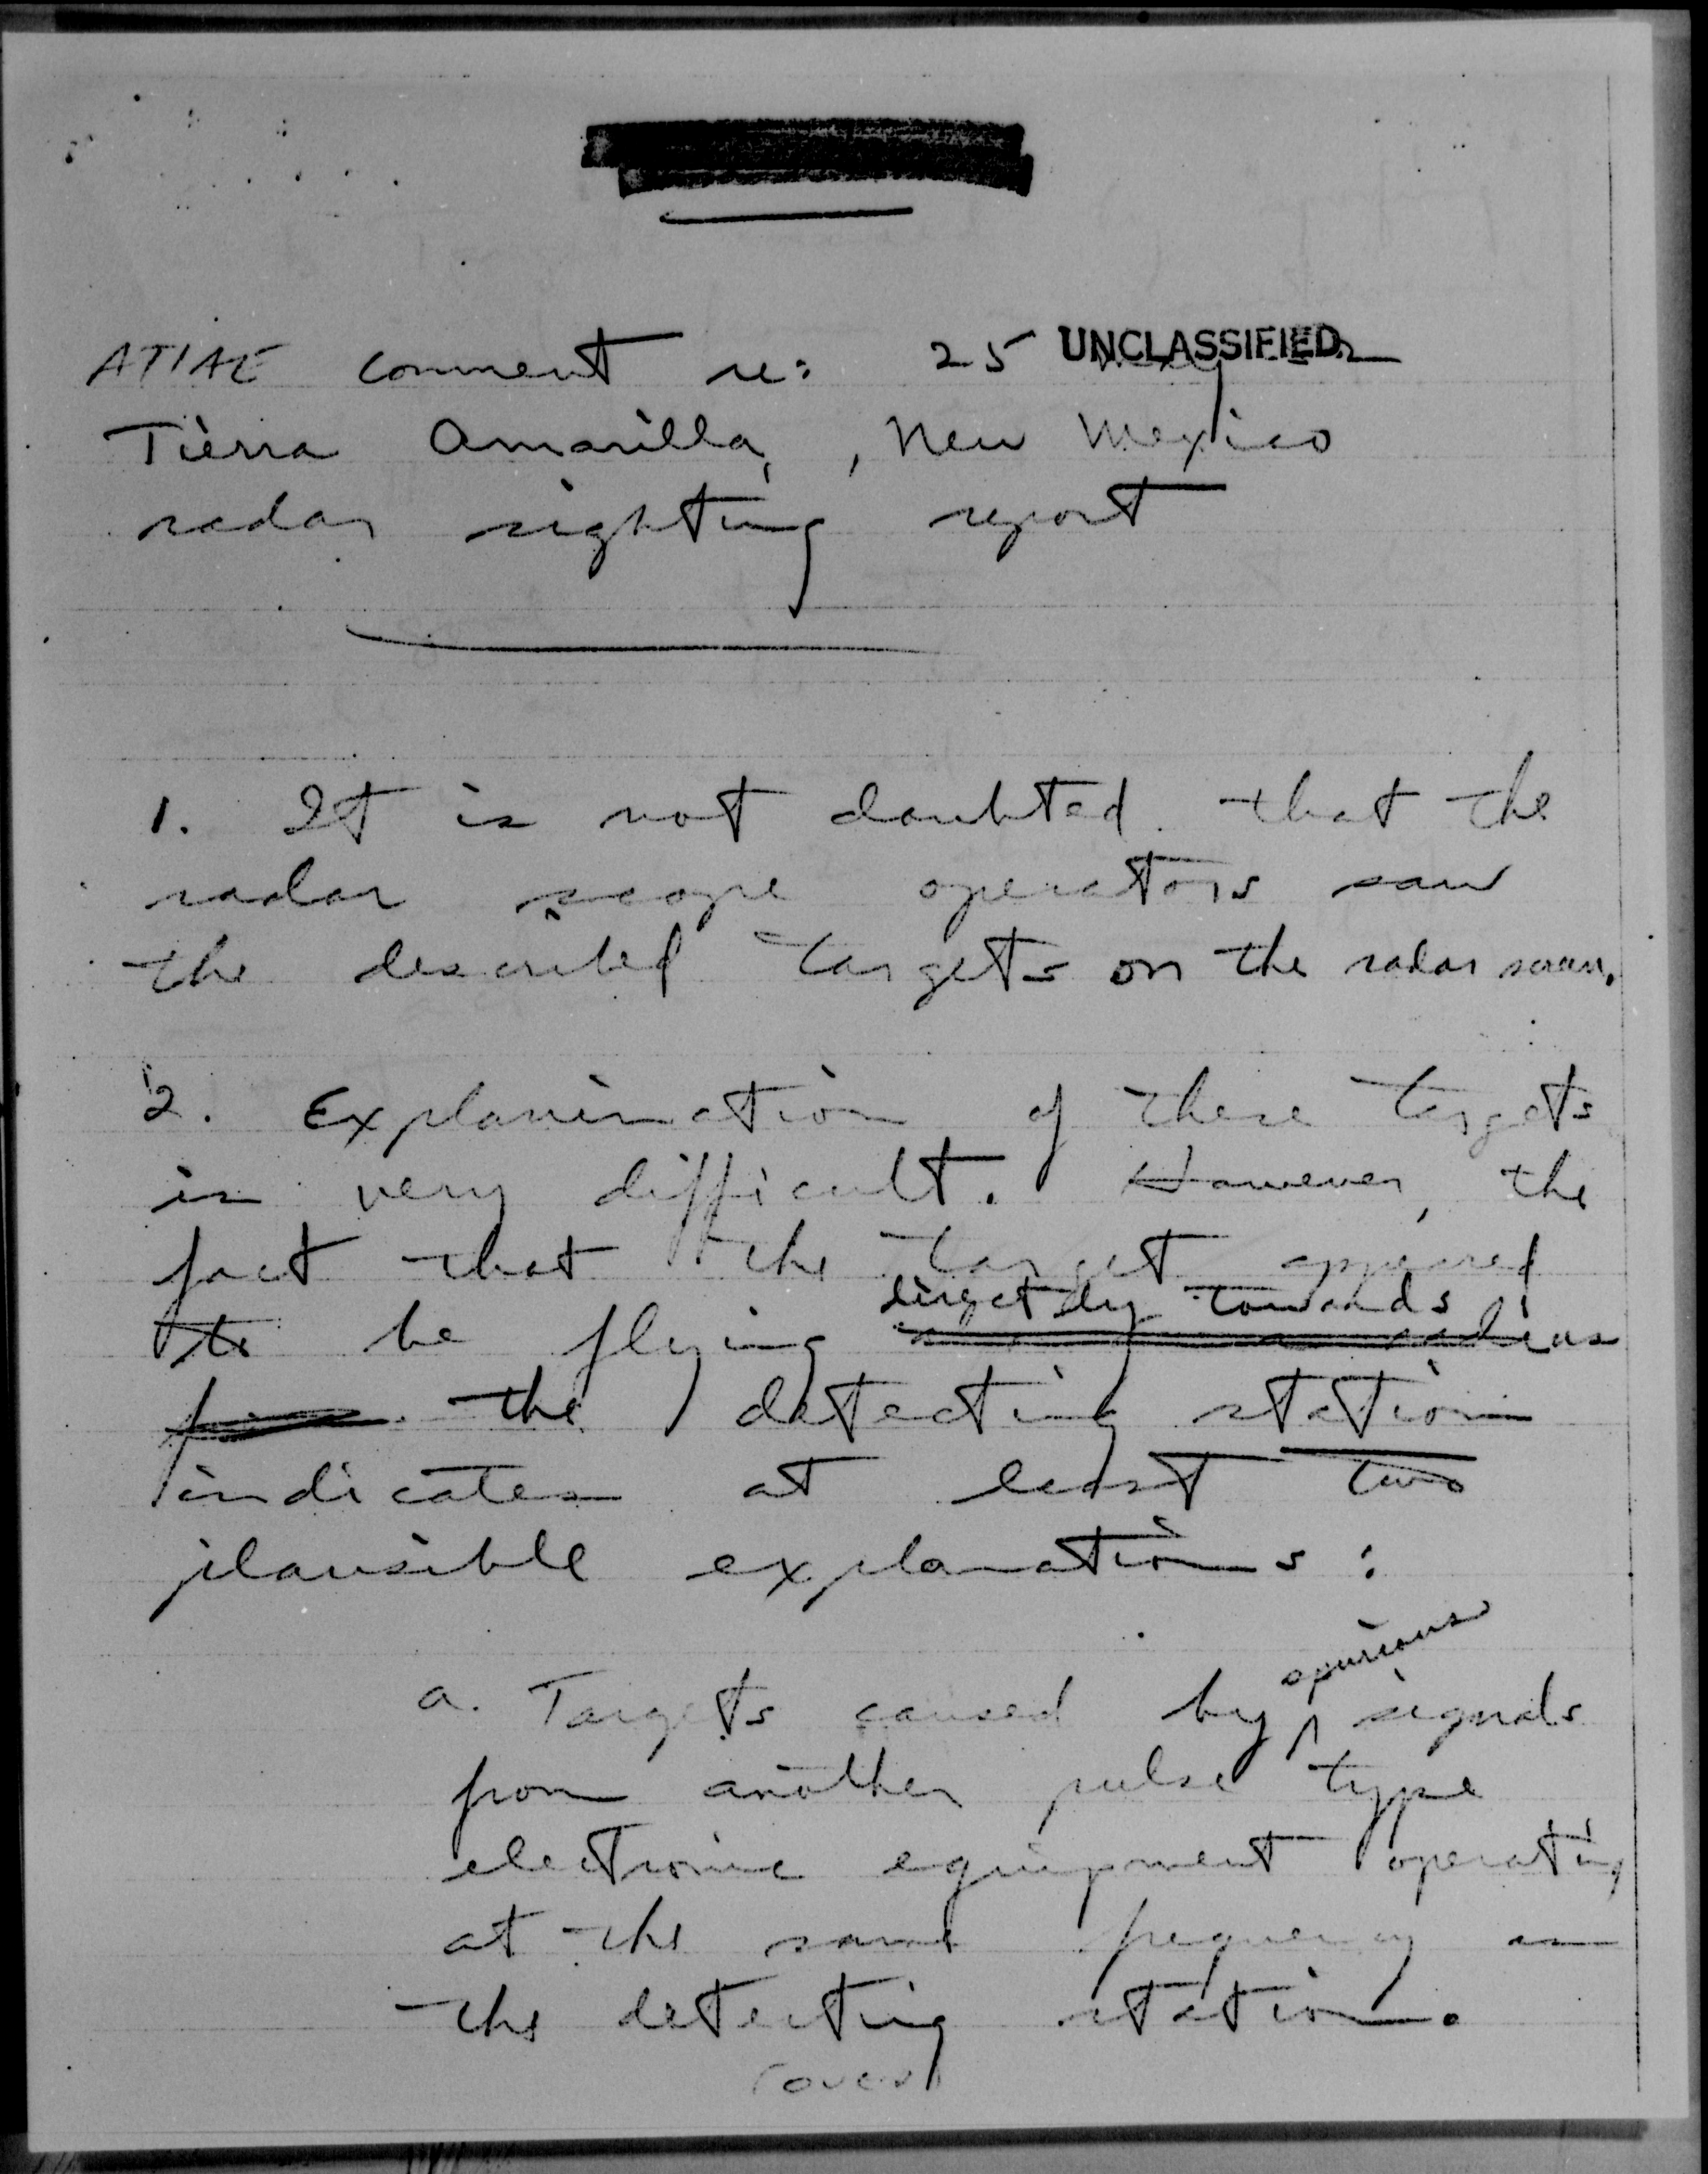 ATIAE comment re: 25 UNCLASSIFIED
Tierra Amarilla, New Mexico
radar sighting report
1. It is not doubted that the
radar scope operators saw
the described targets on the radar screen.
2. Explanination of these targets
is very difficult. However, the
fact that the target appeared
directly towards
to be flying
the detecting station
indicates at least two
plausible explanations:
spurious
a. Targets caused by ^ signals
from another pulse type
electronic equipment operating
at the same frequency as
the detecting station.
(over)